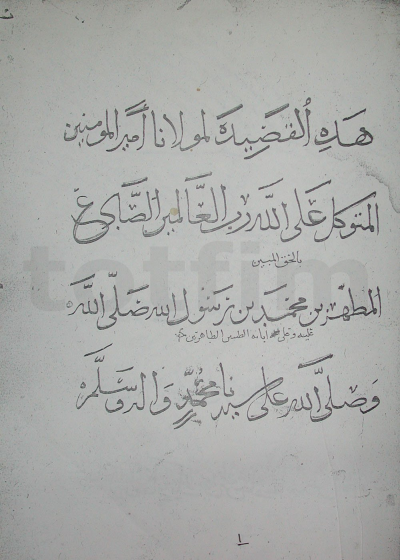 هَذِهِ القَصِيدَة لمولانا أمير المومنين
المتوكل عَلى الله رب العَالمين الصَّادع
بالحق المبين
المطهر بن محمد بن رسول الله صَلى الله
عليه وعلى آبائه الطيبين الطاهرين
وَصَلى الله على سيدنا محمد وآله وسلم
١
totfim